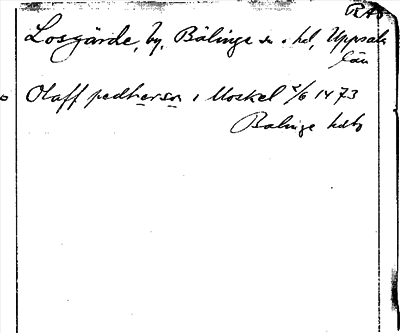 RAp
Losgärde, by, Bälinge sn o hd, Uppsala
län
Olaff pedherson i Moskel 2/6 1473
Balinge hdb